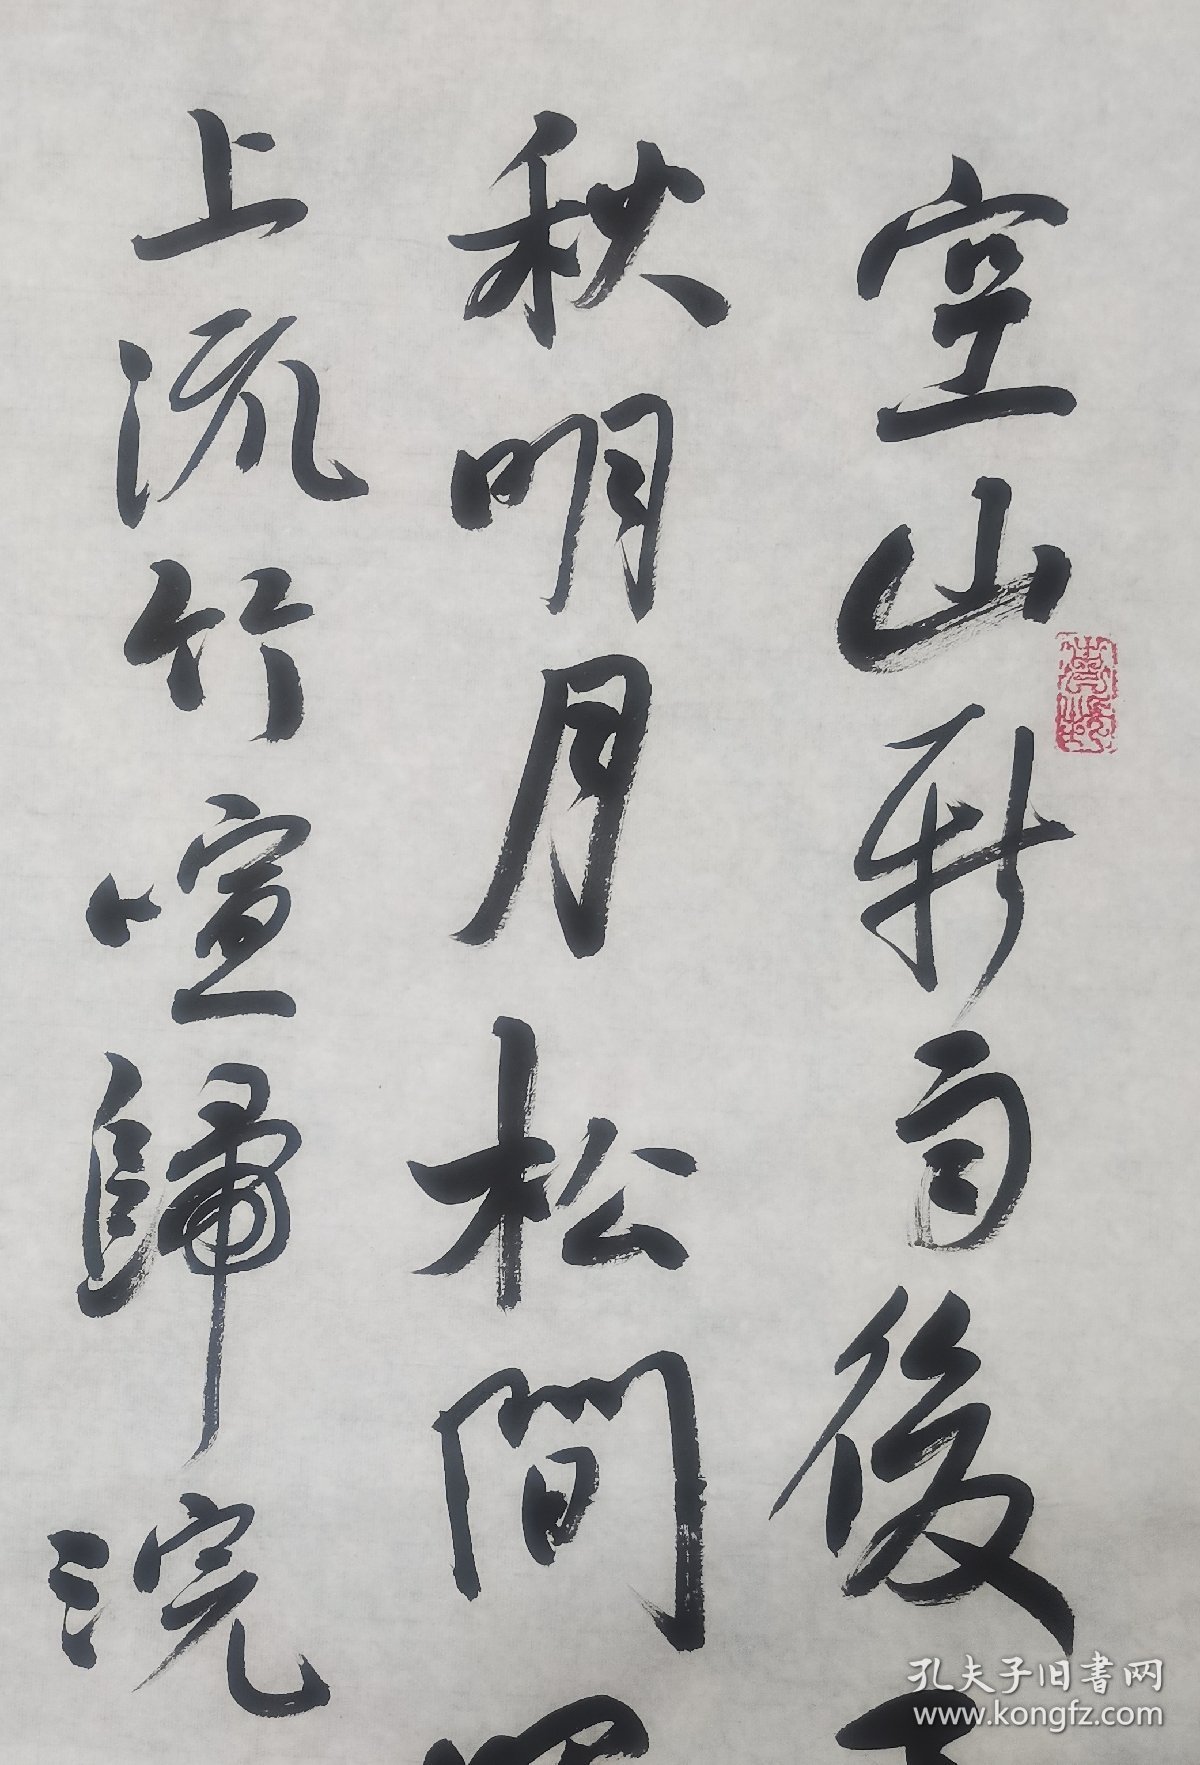 空山新雨後
秋明月松間
上流竹喧歸浣
孔夫子旧書网
www.kongfz.com